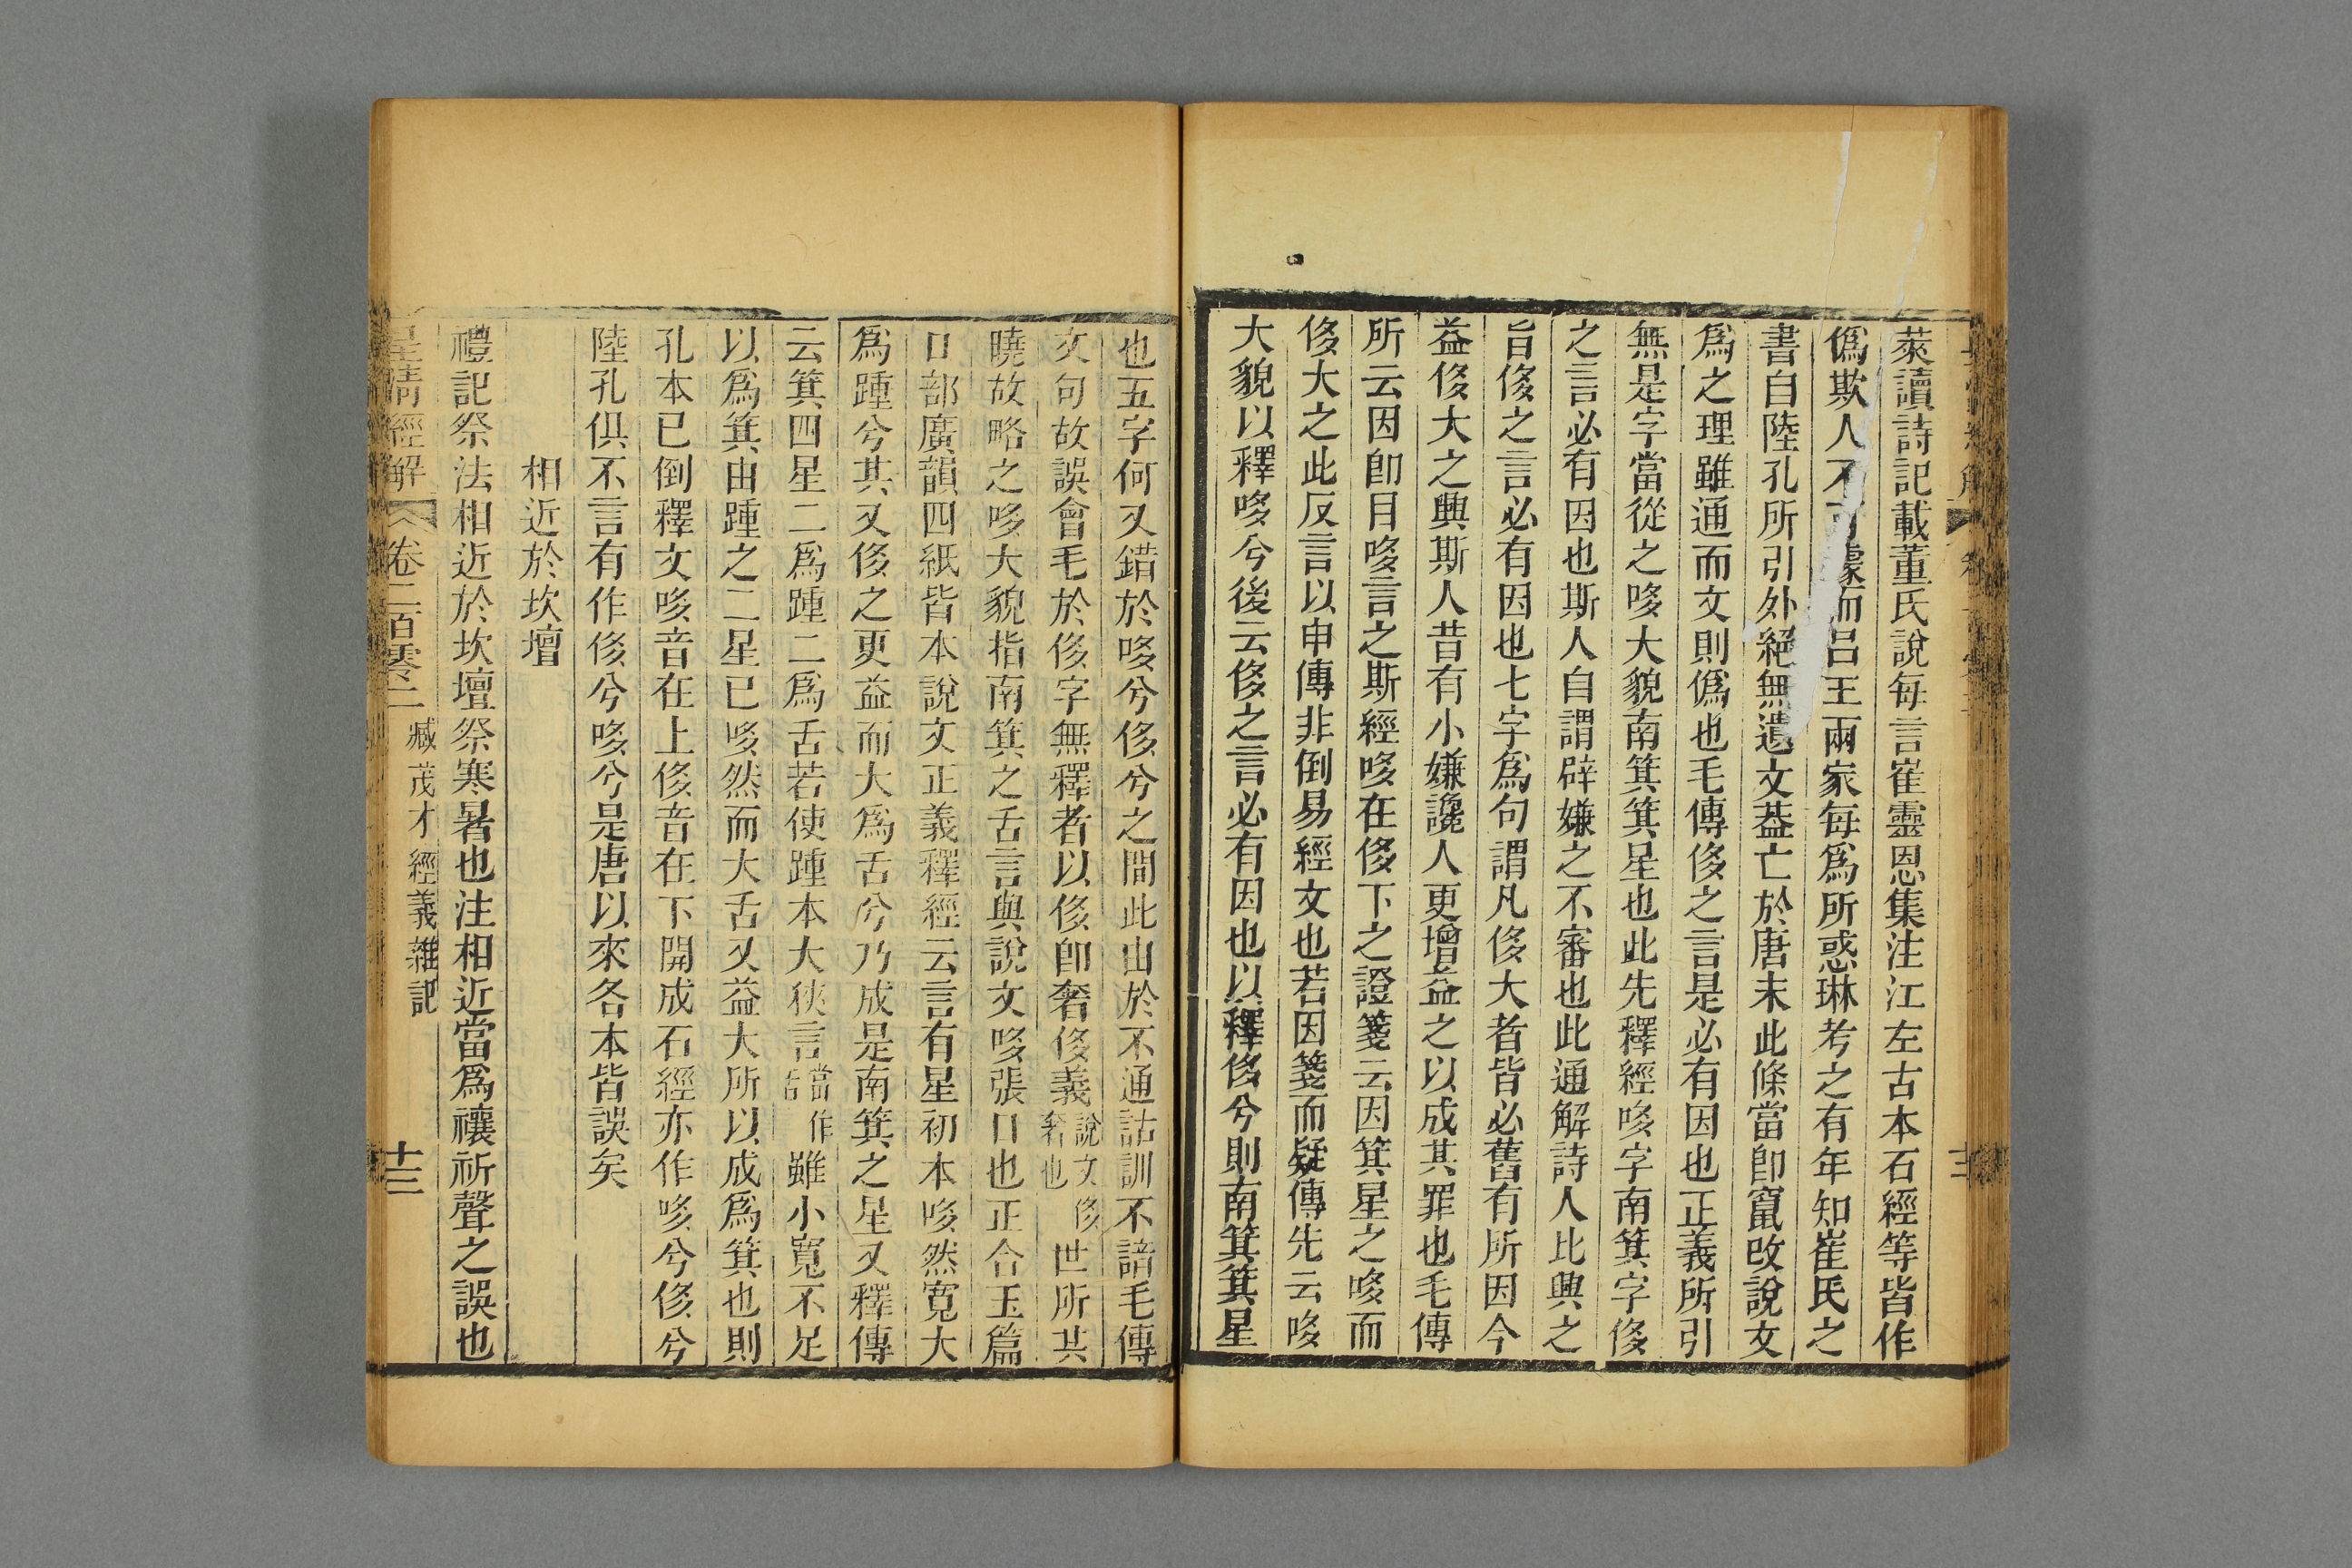 萊讀詩記載董氏說每言崔靈恩集注江左古本石經等皆作
僞欺人不可據而呂王兩家每爲所惑琳考之有年知崔氏之
書自陸孔所引外絕無遺文葢亡於唐末此條當卽竄改說文
爲之理雖通而文則僞也毛傳侈之言是必有因也正義所引
無是字當從之哆大貌南箕箕星也此先釋經哆字南箕字侈
之言必有因也斯人自謂辟嫌之不審也此通解詩人比興之
旨侈之言必有因也七字爲句謂凡侈大者皆必舊有所因今
益侈大之興斯人昔有小嫌讒人更增益之以成其罪也毛傳
所云因卽目哆言之斯經哆在侈下之證箋云因箕星之哆而
侈大之此反言以申傳非倒易經文也若因箋而疑傳先云哆
大貌以釋哆兮後云侈之言必有因也以釋侈兮則南箕箕星
也五字何又錯於哆兮侈兮之間此由於不通詁訓不諳毛傳
文句故誤會毛於侈字無釋者以侈卽奢侈義說文侈奢也世所共
曉故略之哆大貌指南箕之舌言與說文哆張口也正合玉篇
口部廣韻四紙皆本說文正義釋經云言有星初本哆然寬大
爲踵兮其又侈之更益而大爲舌兮乃成是南箕之星又釋傳
云箕四星二爲踵二爲舌若使踵本大狹言當作舌雖小寬不足
以爲箕由踵之二星已哆然而大舌又益大所以成爲箕也則
孔本已倒釋文哆音在上侈音在下開成石經亦作哆兮侈兮
陸孔俱不言有作侈兮哆兮是唐以來各本皆誤矣
相近於坎壇
禮記祭法相近於坎壇祭寒暑也注相近當爲禳祈聲之誤也
皇清經解 卷二百零二 臧茂才經義雜記 十三